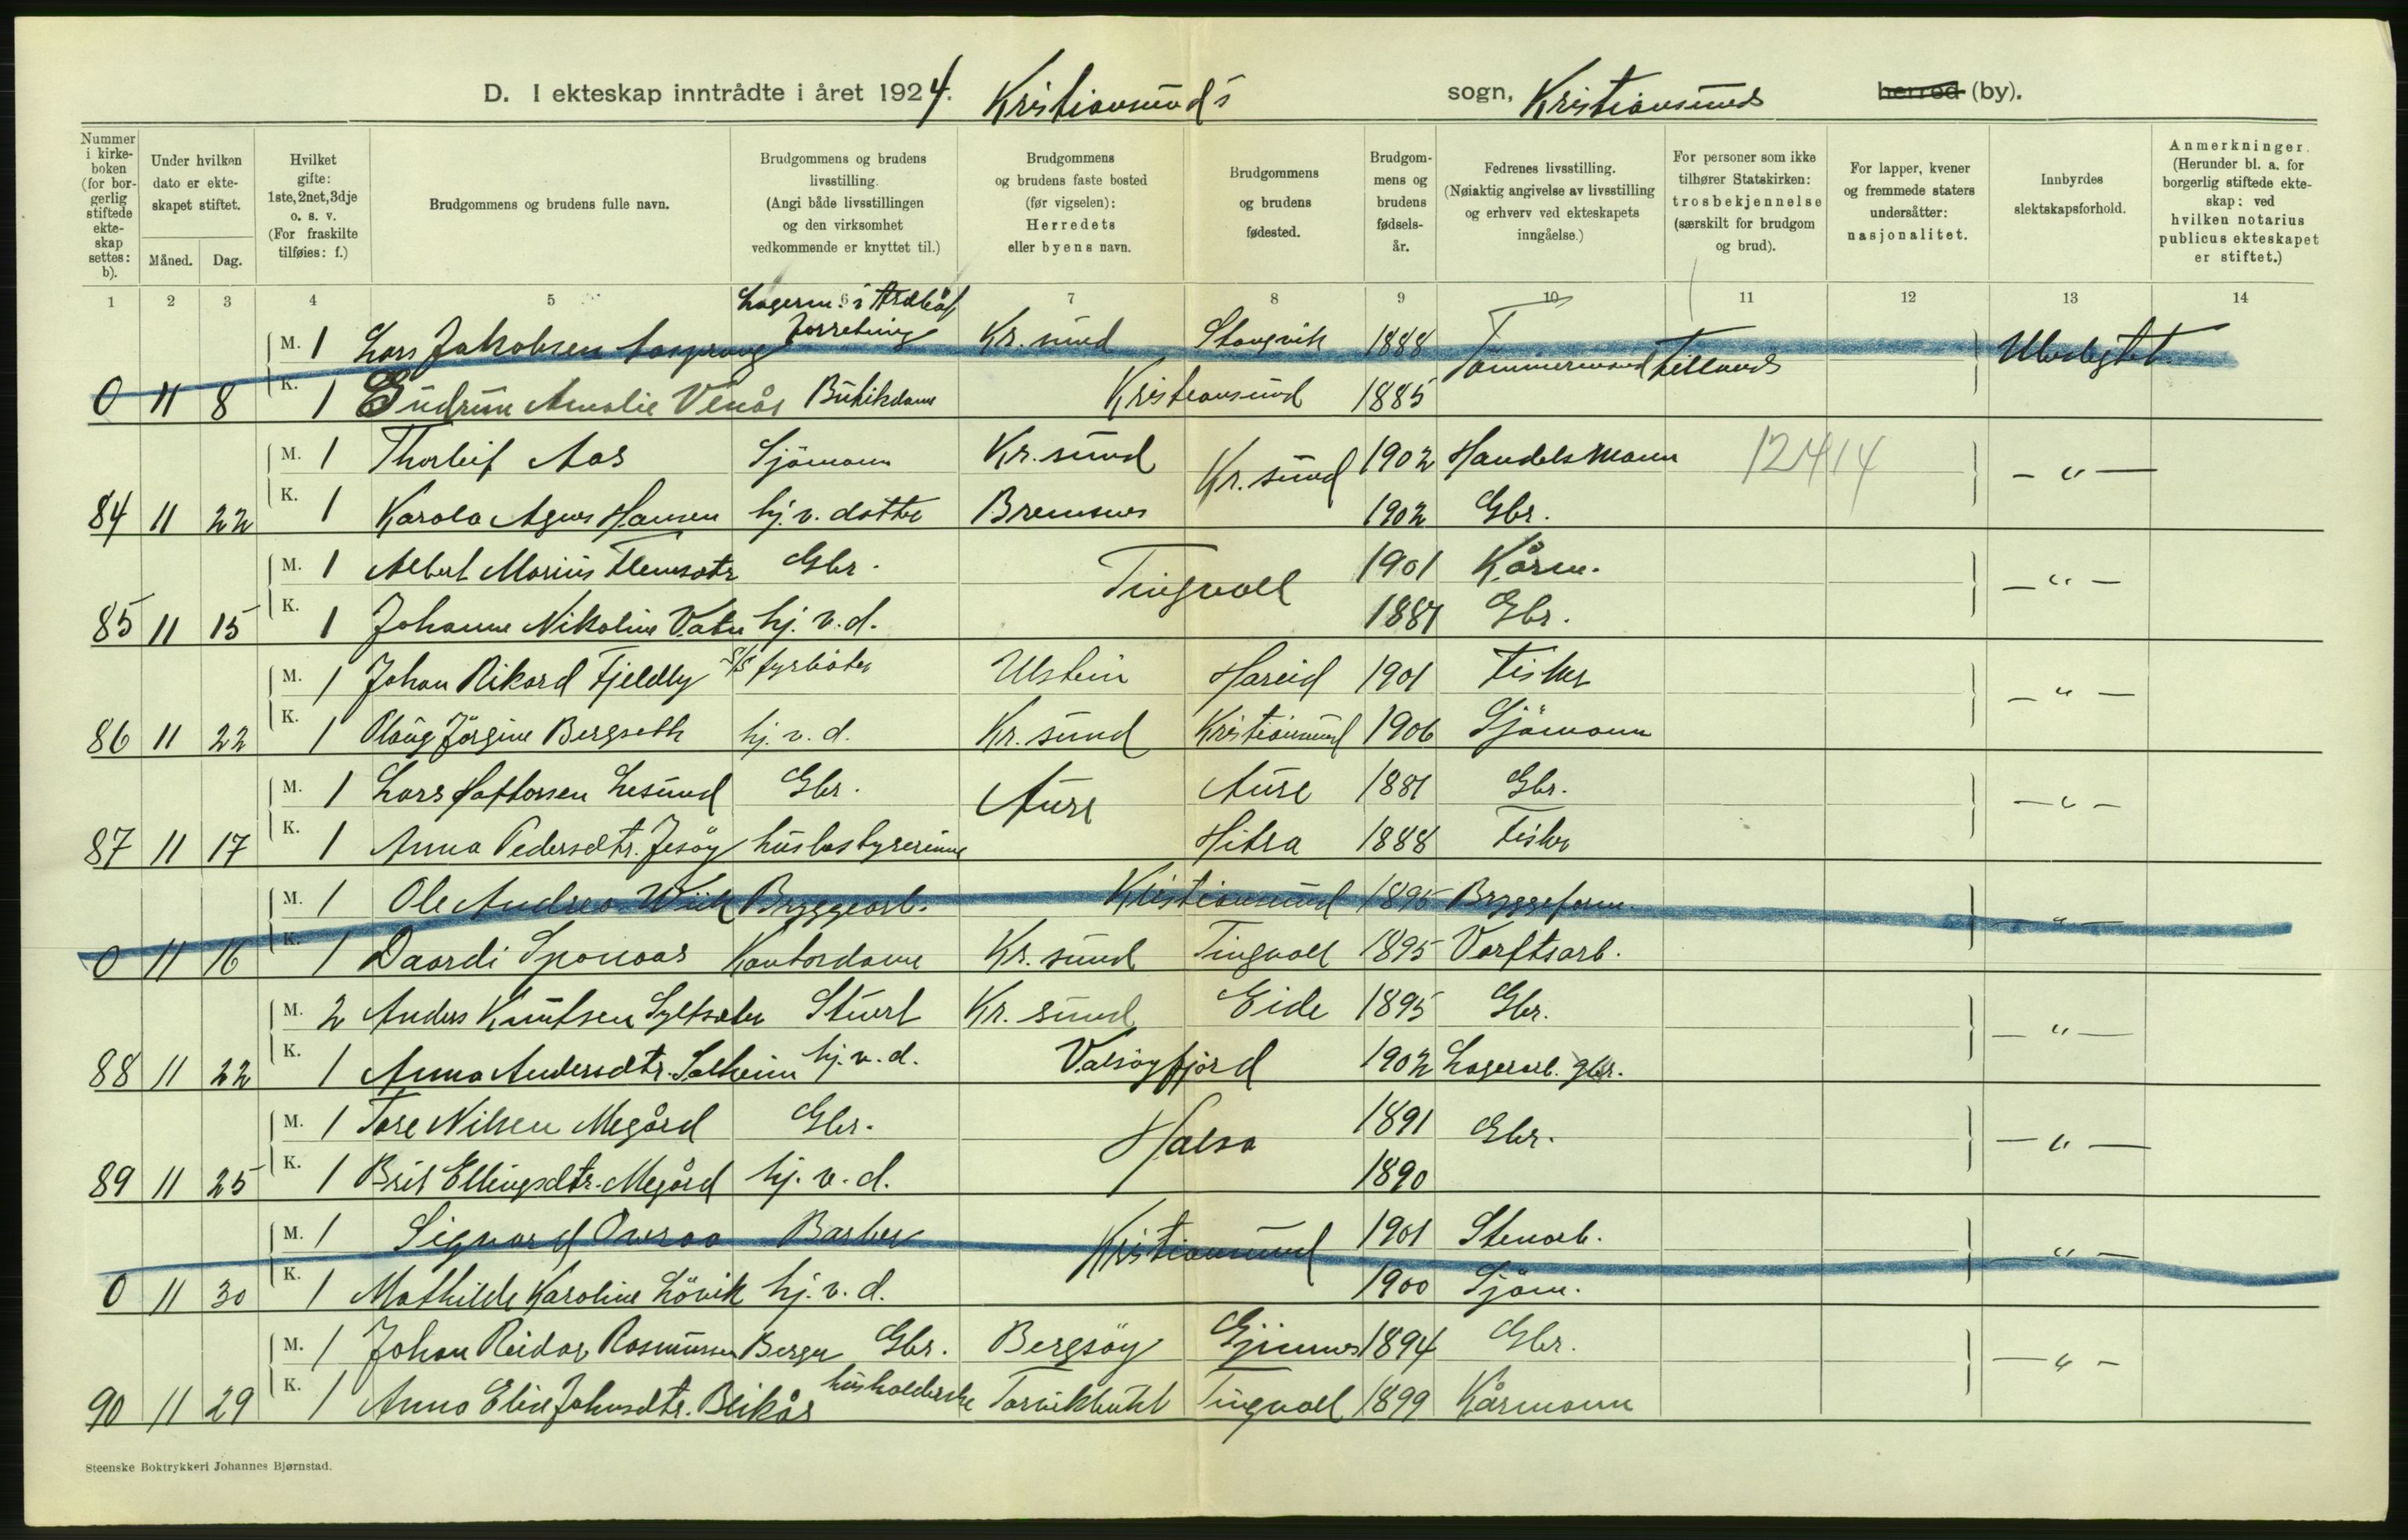 D. I ekteskap inntrådte i året 1924. Kristiansund's sogn, Kristiansunds herred (by).
Nummer i kirkeboken (for borgerlig stiftede ekteskap settes: b).
Under hvilken dato er ekteskapet stiftet.
Måned. Dag.
Hvilket gifte: 1ste, 2net, 3dje o. s. v. (For fraskilte tilføies: f.)
Brudgommens og brudens fulle navn.
Brudgommens og brudens livsstilling. (Angi både livsstillingen og den virksomhet vedkommende er knyttet til.)
Brudgommens og brudens faste bosted (før vigselen): Herredets eller byens navn.
Brudgommens og brudens fødested.
Brudgommens og brudens fødselsår.
Fedrenes livsstilling. (Nøiaktig angivelse av livsstilling og erhverv ved ekteskapets inngåelse.)
For personer som ikke tilhører Statskirken: trosbekjennelse (særskilt for brudgom og brud).
For lapper, kvener og fremmede staters undersåtter: nasjonalitet.
Innbyrdes slektskapsforhold.
Anmerkninger. (Herunder bl. a. for borgerlig stiftede ekteskap: ved hvilken notarius publicus ekteskapet er stiftet.)
1 2 3 4 5 6 7 8 9 10 11 12 13 14
M. 1 Lars Jakobsen Lagerm. i forretning Kr. sund Stangvik 1888 Tømmermand Ubeslegtet
0 11 8 K. 1 Gudrun Amalie Venås Butikdame Kristiansund 1885
M. 1 Thorleif Aas Sjömann Kr. sund Kr. sund 1902 Handelsmann 12414 - " -
84 11 22 K. 1 Karola Agnes Hansen hj. v. datter Bremsnes 1902 Gbr.
M. 1 Albert Marius Flemsætr Gbr. Tingvoll 1901 Kårm. - " -
85 11 15 K. 1 Johanne Nikoline Vatn hj. v. d. 1887 Gbr.
M. 1 Johan Rikard Fjeldby fyrböter Ulstein Hareid 1901 Fisker - " -
86 11 22 K. 1 Olaug Jörgine Bergseth hj. v. d. Kr. sund Kristiansund 1906 Sjömann
M. 1 Lars Hallorsen Lesund Gbr. Aure Aure 1881 Gbr. - " -
87 11 17 K. 1 Anna Pedersdtr. Jesöy husbestyrerinne Hitra 1888 Fisker
M. 1 Ole Andreas Wiik Bryggearb. Kristiansund 1895 Bryggeform. - " -
0 11 16 K. 1 Daardi Sponaas Kontordame Kr. sund Tingvoll 1895 Verftsarb.
M. 2 Anders Knutsen Syltsæter Stuert Kr. sund Eide 1895 Gbr. - " -
88 11 22 K. 1 Anna Andersdtr. Solheim hj. v. d. Valsöyfjord 1902 Lagerarb. gbr.
M. 1 Tore Nilsen Megård Gbr. Halsa 1891 Gbr. - " -
89 11 25 K. 1 Brit Ellingsdtr. Megård hj. v. d. 1890
M. 1 Sigvard Overaa Barber Kristiansund 1901 Stenarb. - " -
0 11 30 K. 1 Mathilde Karoline Lövik hj. v. d. 1900 Sjöm.
M. 1 Johan Reidar Rasmussen Berger Gbr. Bergsöy Gjemnes 1894 Gbr. - " -
90 11 29 K. 1 Anna Elise Johnsdtr. Blikås husholderske Torvikbukt Tingvoll 1899 Kårmann
Steenske Boktrykkeri Johannes Bjørnstad.